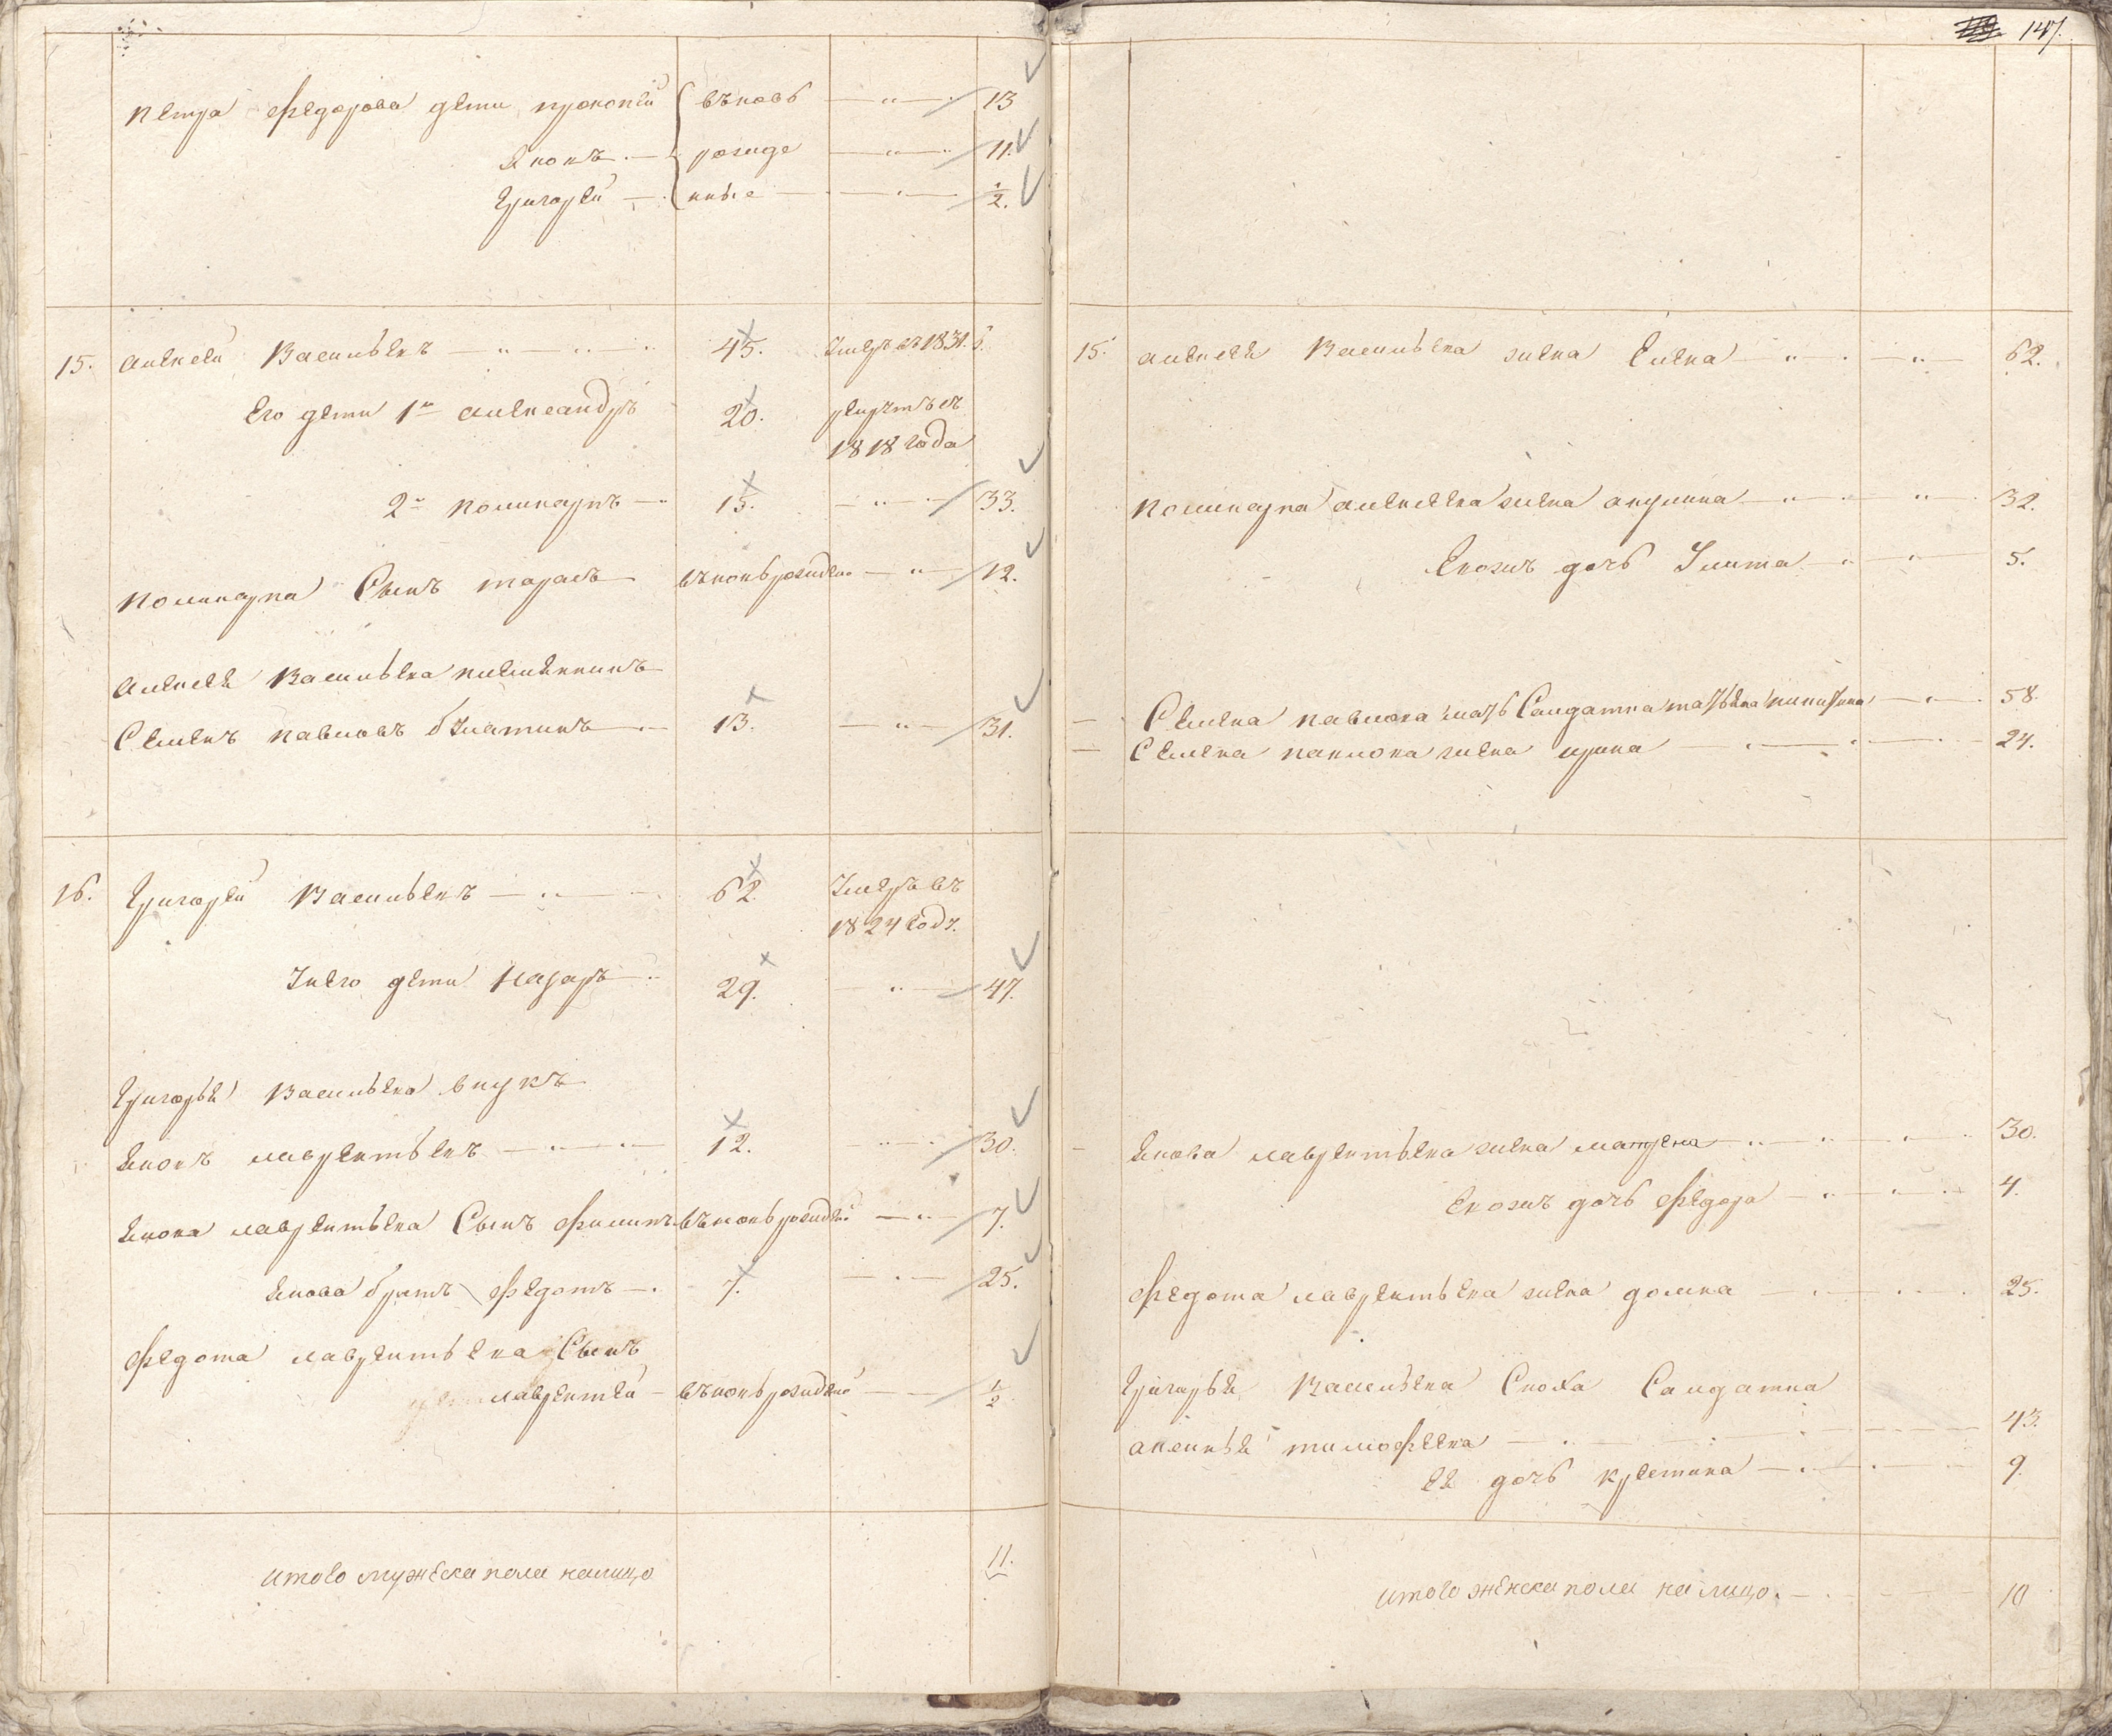 147.
Петра Федорова дети прокопей вновь — „ — 13
Яковъ — рожде — „ — 11.
Григорей — нные — „ — 1/2.
15. Алексей Васильевъ — „ — 45. Умеръ въ 1831. г.
Его дети 1й Александръ 20. рекрутъ съ
1818 года
2й поликарпъ — 15. — „ — 33.
поликарпа Сынъ тарасъ вновь рожден — „ — 12.
Алексея Васильева племянникъ
Семенъ павловъ — 13. — „ — 31.
16. Григорей Васильевъ — „ — 62. Умеръ въ
1824 годъ.
У него дети Назаръ 29. — „ — 47.
Григорья Васильева внукъ
Яковъ лаврентьевъ — „ — 12. — „ — 30.
Якова лаврентьева Сынъ Филипъ вновь рожден — „ — 7.
Якова братъ Федотъ — 7. — „ — 25.
Федота лаврентьева Сынъ
лаврентей — вновь рожденой — 1/2
итого мужеска пола налицо 11.
15. алексея Васильева жена Елена — „ — „ — 62.
поликарпа алексеева жена акулина — „ — „ — 32.
Евожъ дочь Улита — „ — 5.
— Семена павлова мать Салдатка — 58.
— Семена павлова жена ирина — 24.
— Якова лаврентьева жена матрена — „ — 30.
Евожъ дочь Федора — „ — 4.
Федота лаврентьева жена домна — 25.
Григорья Васильева Сноха Салдатка
аксинья тимофеева — 43.
ея дочь кристина — 9.
итого женска пола на лицо. — 10